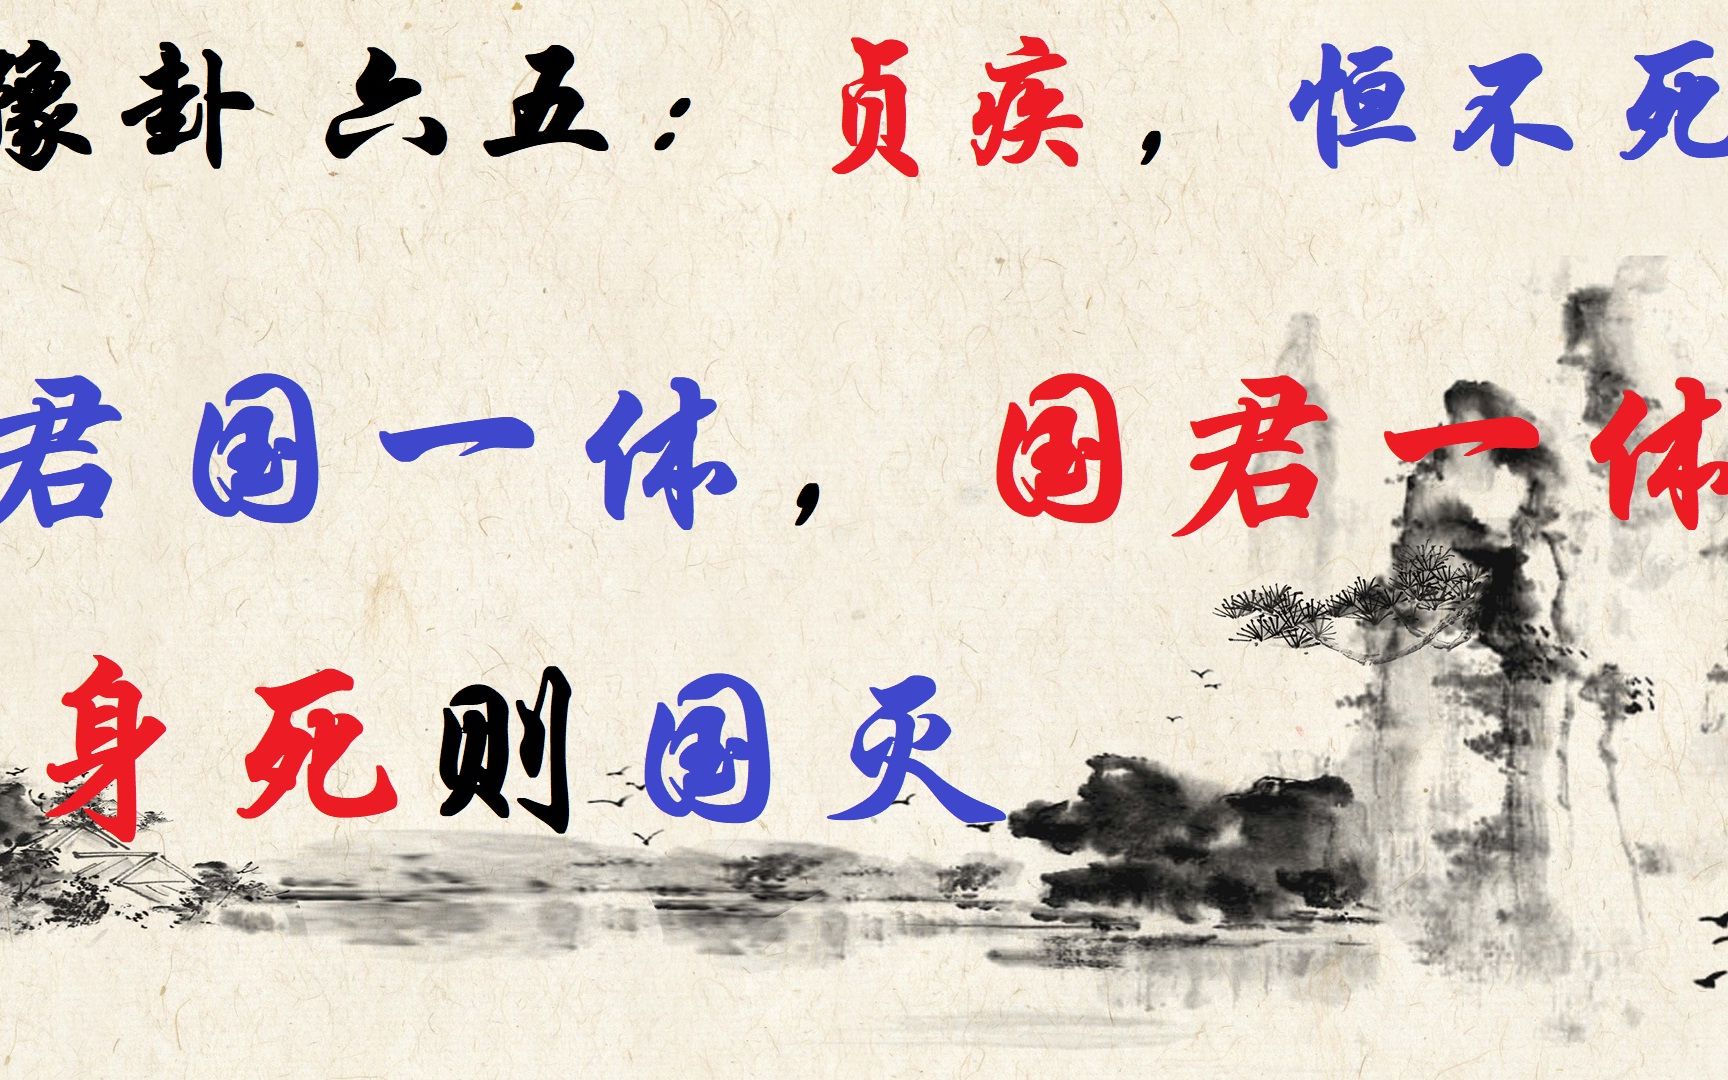 豫卦 六五：贞疾，恒不死
君国一体，国君一体
身死则国灭